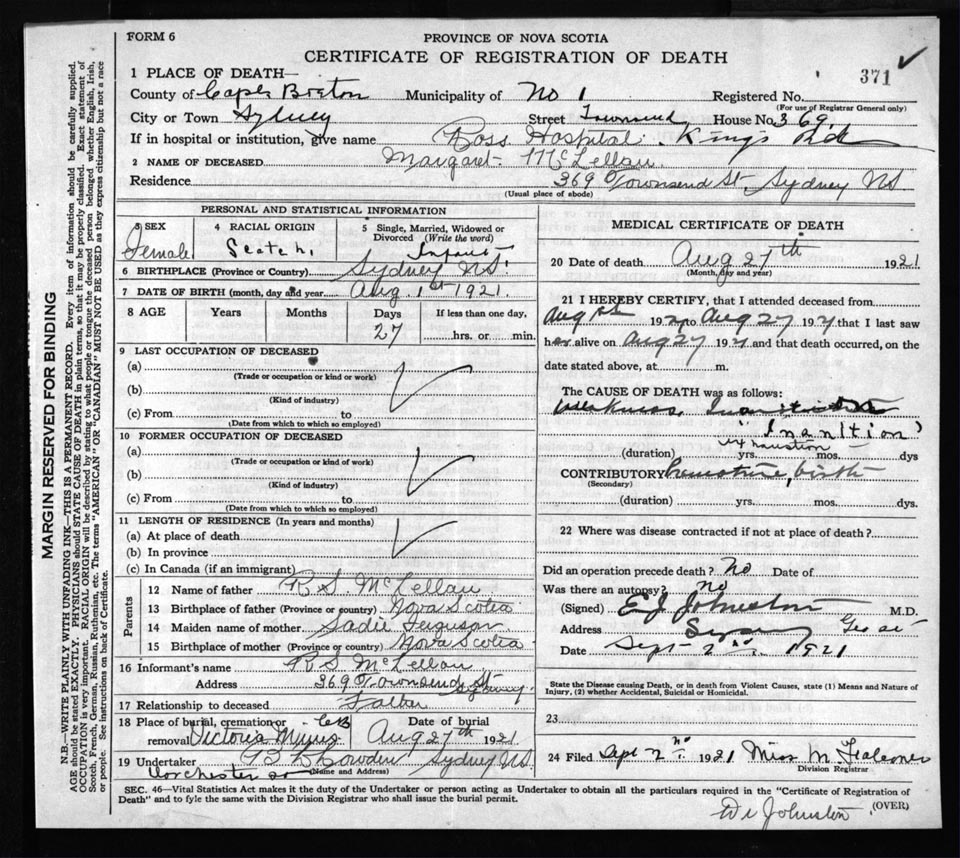 FORM 6
PROVINCE OF NOVA SCOTIA
CERTIFICATE OF REGISTRATION OF DEATH
371
1 PLACE OF DEATH—
County of Cape Breton Municipality of No 1 Registered No.
(For use of Registrar General only)
City or Town Sydney Street Townsend House No. 369
If in hospital or institution, give name Ross Hospital. Kings Rd
2 NAME OF DECEASED Margaret McLellan
Residence 369 Townsend St, Sydney NS
(Usual place of abode)
PERSONAL AND STATISTICAL INFORMATION
3 SEX Female
4 RACIAL ORIGIN Scotch
5 Single, Married, Widowed or Divorced (Write the word) Infant
6 BIRTHPLACE (Province or Country) Sydney NS.
7 DATE OF BIRTH (month, day and year Aug 1st 1921.
8 AGE Years Months Days If less than one day,
27 hrs. or min.
9 LAST OCCUPATION OF DECEASED
(a)
(Trade or occupation or kind or work)
(b)
(Kind of industry)
(c) From to
(Date from which to which so employed)
10 FORMER OCCUPATION OF DECEASED
(a)
(Trade or occupation or kind or work)
(b)
(Kind of industry)
(c) From to
(Date from which to which so employed)
11 LENGTH OF RESIDENCE (In years and months)
(a) At place of death
(b) In province
(c) In Canada (if an immigrant)
Parents
12 Name of father R S McLellan
13 Birthplace of father (Province or country) Nova Scotia
14 Maiden name of mother Sadie Ferguson
15 Birthplace of mother (Province or country) Nova Scotia
16 Informant's name R S McLellan
Address 369 Townsend St Sydney.
17 Relationship to deceased Father
18 Place of burial, cremation or removal Victoria Mines CB
Date of burial Aug 27th 1921
19 Undertaker Sydney NS.
Dorchester (Name and Address)
MEDICAL CERTIFICATE OF DEATH
20 Date of death Aug 27th 1921
(Month, day and year)
21 I HEREBY CERTIFY, that I attended deceased from
Aug 1st 1921 to Aug 27 1921 that I last saw
her alive on Aug 27 1921 and that death occurred, on the
date stated above, at m.
The CAUSE OF DEATH was as follows:
Weakness. Inanition
"Inanition"
Exhaustion
(duration) yrs. mos. dys
CONTRIBUTORY Premature birth
(Secondary)
(duration) yrs. mos. dys.
22 Where was disease contracted if not at place of death?
Did an operation precede death? No Date of
Was there an autopsy? No
(Signed) E J Johnston M.D.
Address Sydney
Date Sept 2nd 1921
State the Disease causing Death, or in death from Violent Causes, state (1) Means and Nature of
Injury, (2) whether Accidental, Suicidal or Homicidal.
23
24 Filed Sept 2nd 1921 Miss M Falconer
Division Registrar
SEC. 46—Vital Statistics Act makes it the duty of the Undertaker or person acting as Undertaker to obtain all the particulars required in the "Certificate of Registration of
Death" and to fyle the same with the Division Registrar who shall issue the burial permit.
(OVER)
Johnston
MARGIN RESERVED FOR BINDING
N.B.—WRITE PLAINLY WITH UNFADING INK—THIS IS A PERMANENT RECORD. Every item of information should be carefully supplied.
AGE should be stated EXACTLY. PHYSICIANS should STATE CAUSE OF DEATH in plain terms, so that it may be properly classified. Exact statement of
OCCUPATION is very important. RACIAL ORIGIN will be described by stating to what people or tongue the deceased person belonged whether English, Irish,
Scotch, French, German, Russian, Ruthenian, etc. The terms "AMERICAN" OR "CANADIAN" MUST NOT BE USED as they express citizenship but not a race
or people. See instructions on back of Certificate.